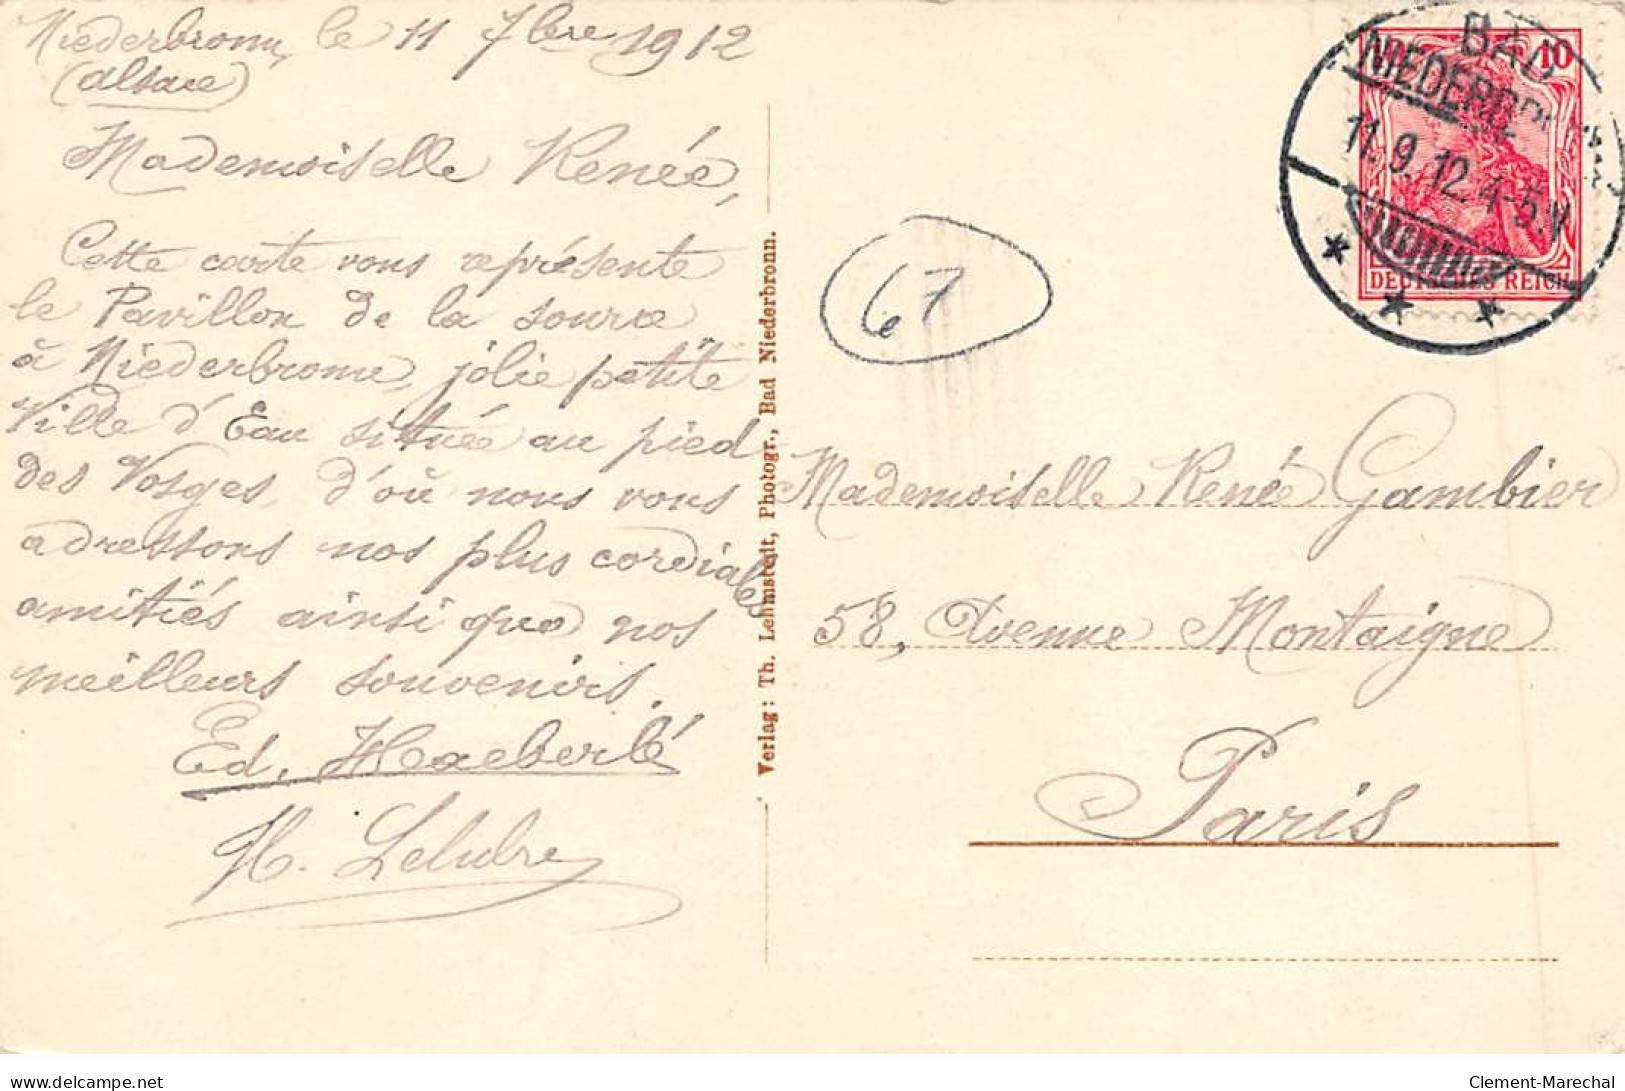 Niederbronn, le 11 7bre 1912
(Alsace)
Mademoiselle Renée,
Cette carte vous représente
le Pavillon de la source
à Niederbronn, jolie petite
Ville d'Eau située au pied
des Vosges, d'où nous vous
adressons nos plus cordiales
amitiés ainsi que nos
meilleurs souvenirs.
Ed. Haeberlé
H. Lelubre
Verlag: Th. Lehmstedt, Photogr., Bad Niederbronn.
67
BAD
11.9.12.4-5.V
10
DEUTSCHES REICH
Mademoiselle Renée Gambier
58, Avenue Montaigne
Paris
delcampe.net
Clement-Marechal